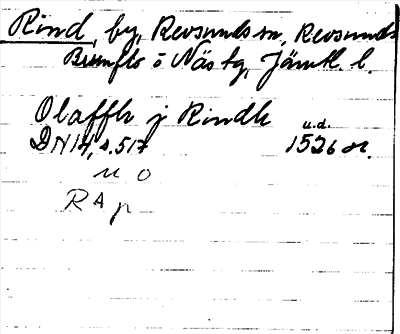 Rind, by, Revsunds sn, Revsunds
Brunflo o Näs tg, Jämtl. l.
Olaffh j Rindh
u.d.
DN 14, s. 517 1526 or.
u o
R A p